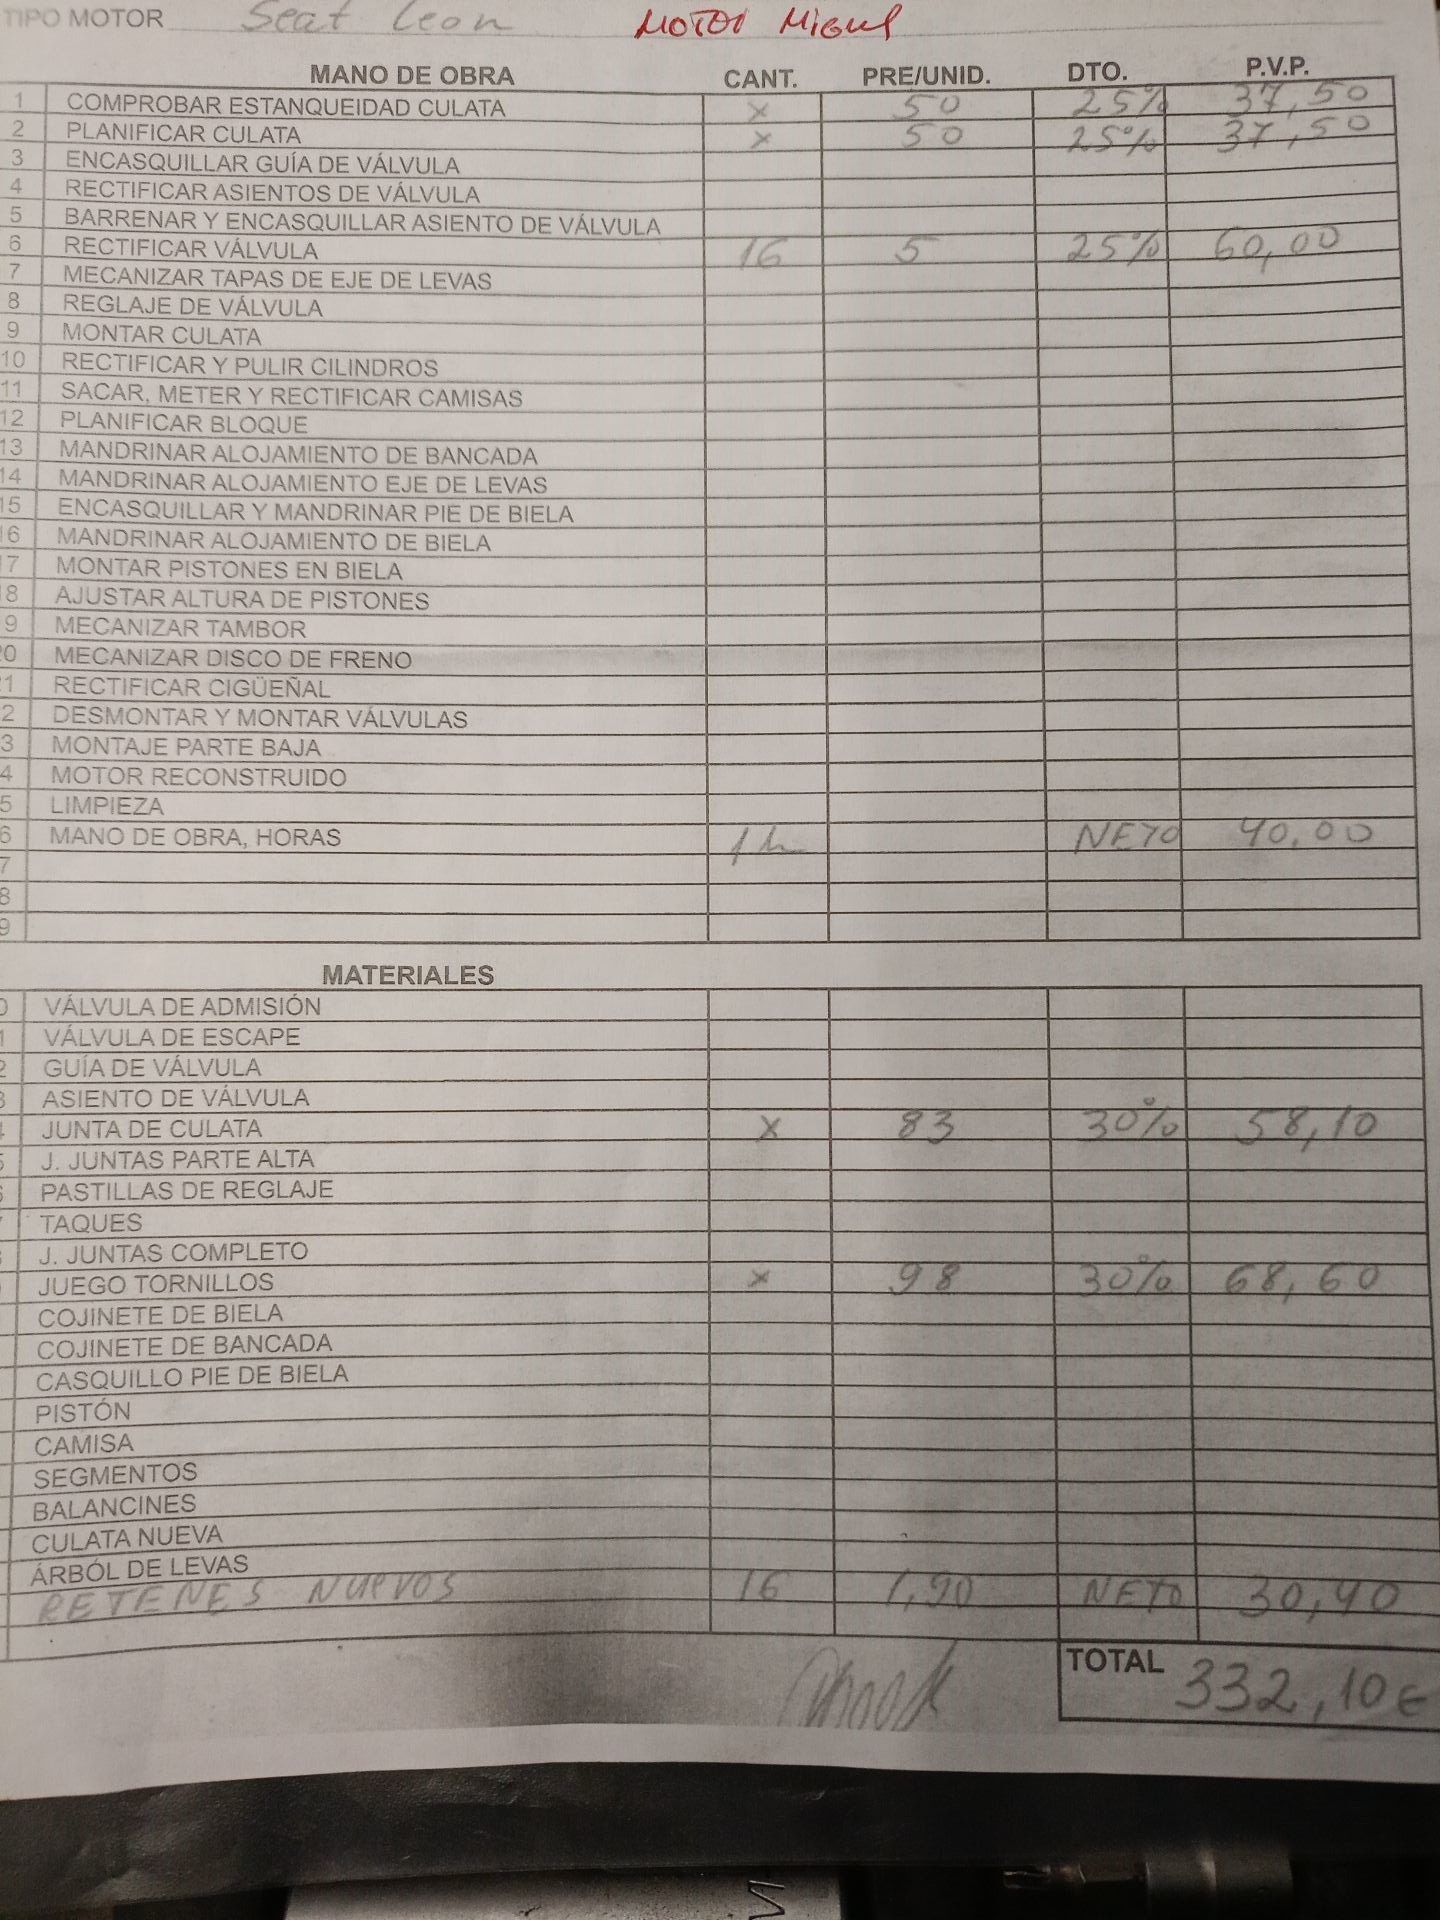 TIPO MOTOR Seat Leon MOTOR Miguel
MANO DE OBRA CANT. PRE/UNID. DTO. P.V.P.
1 COMPROBAR ESTANQUEIDAD CULATA x 50 25% 37,50
2 PLANIFICAR CULATA x 50 25% 37,50
3 ENCASQUILLAR GUÍA DE VÁLVULA
4 RECTIFICAR ASIENTOS DE VÁLVULA
5 BARRENAR Y ENCASQUILLAR ASIENTO DE VÁLVULA
6 RECTIFICAR VÁLVULA 16 5 25% 60,00
7 MECANIZAR TAPAS DE EJE DE LEVAS
8 REGLAJE DE VÁLVULA
9 MONTAR CULATA
10 RECTIFICAR Y PULIR CILINDROS
11 SACAR, METER Y RECTIFICAR CAMISAS
12 PLANIFICAR BLOQUE
13 MANDRINAR ALOJAMIENTO DE BANCADA
14 MANDRINAR ALOJAMIENTO EJE DE LEVAS
15 ENCASQUILLAR Y MANDRINAR PIE DE BIELA
16 MANDRINAR ALOJAMIENTO DE BIELA
17 MONTAR PISTONES EN BIELA
18 AJUSTAR ALTURA DE PISTONES
9 MECANIZAR TAMBOR
20 MECANIZAR DISCO DE FRENO
1 RECTIFICAR CIGÜEÑAL
2 DESMONTAR Y MONTAR VÁLVULAS
3 MONTAJE PARTE BAJA
4 MOTOR RECONSTRUIDO
5 LIMPIEZA
6 MANO DE OBRA, HORAS 1h NETO 40,00
7
8
9
MATERIALES
0 VÁLVULA DE ADMISIÓN
1 VÁLVULA DE ESCAPE
2 GUÍA DE VÁLVULA
3 ASIENTO DE VÁLVULA
4 JUNTA DE CULATA x 83 30% 58,10
5 J. JUNTAS PARTE ALTA
6 PASTILLAS DE REGLAJE
7 TAQUES
J. JUNTAS COMPLETO
JUEGO TORNILLOS x 98 30% 68,60
COJINETE DE BIELA
COJINETE DE BANCADA
CASQUILLO PIE DE BIELA
PISTÓN
CAMISA
SEGMENTOS
BALANCINES
CULATA NUEVA
ÁRBÓL DE LEVAS
RETENES NUEVOS 16 1,90 NETO 30,40
TOTAL 332,10€